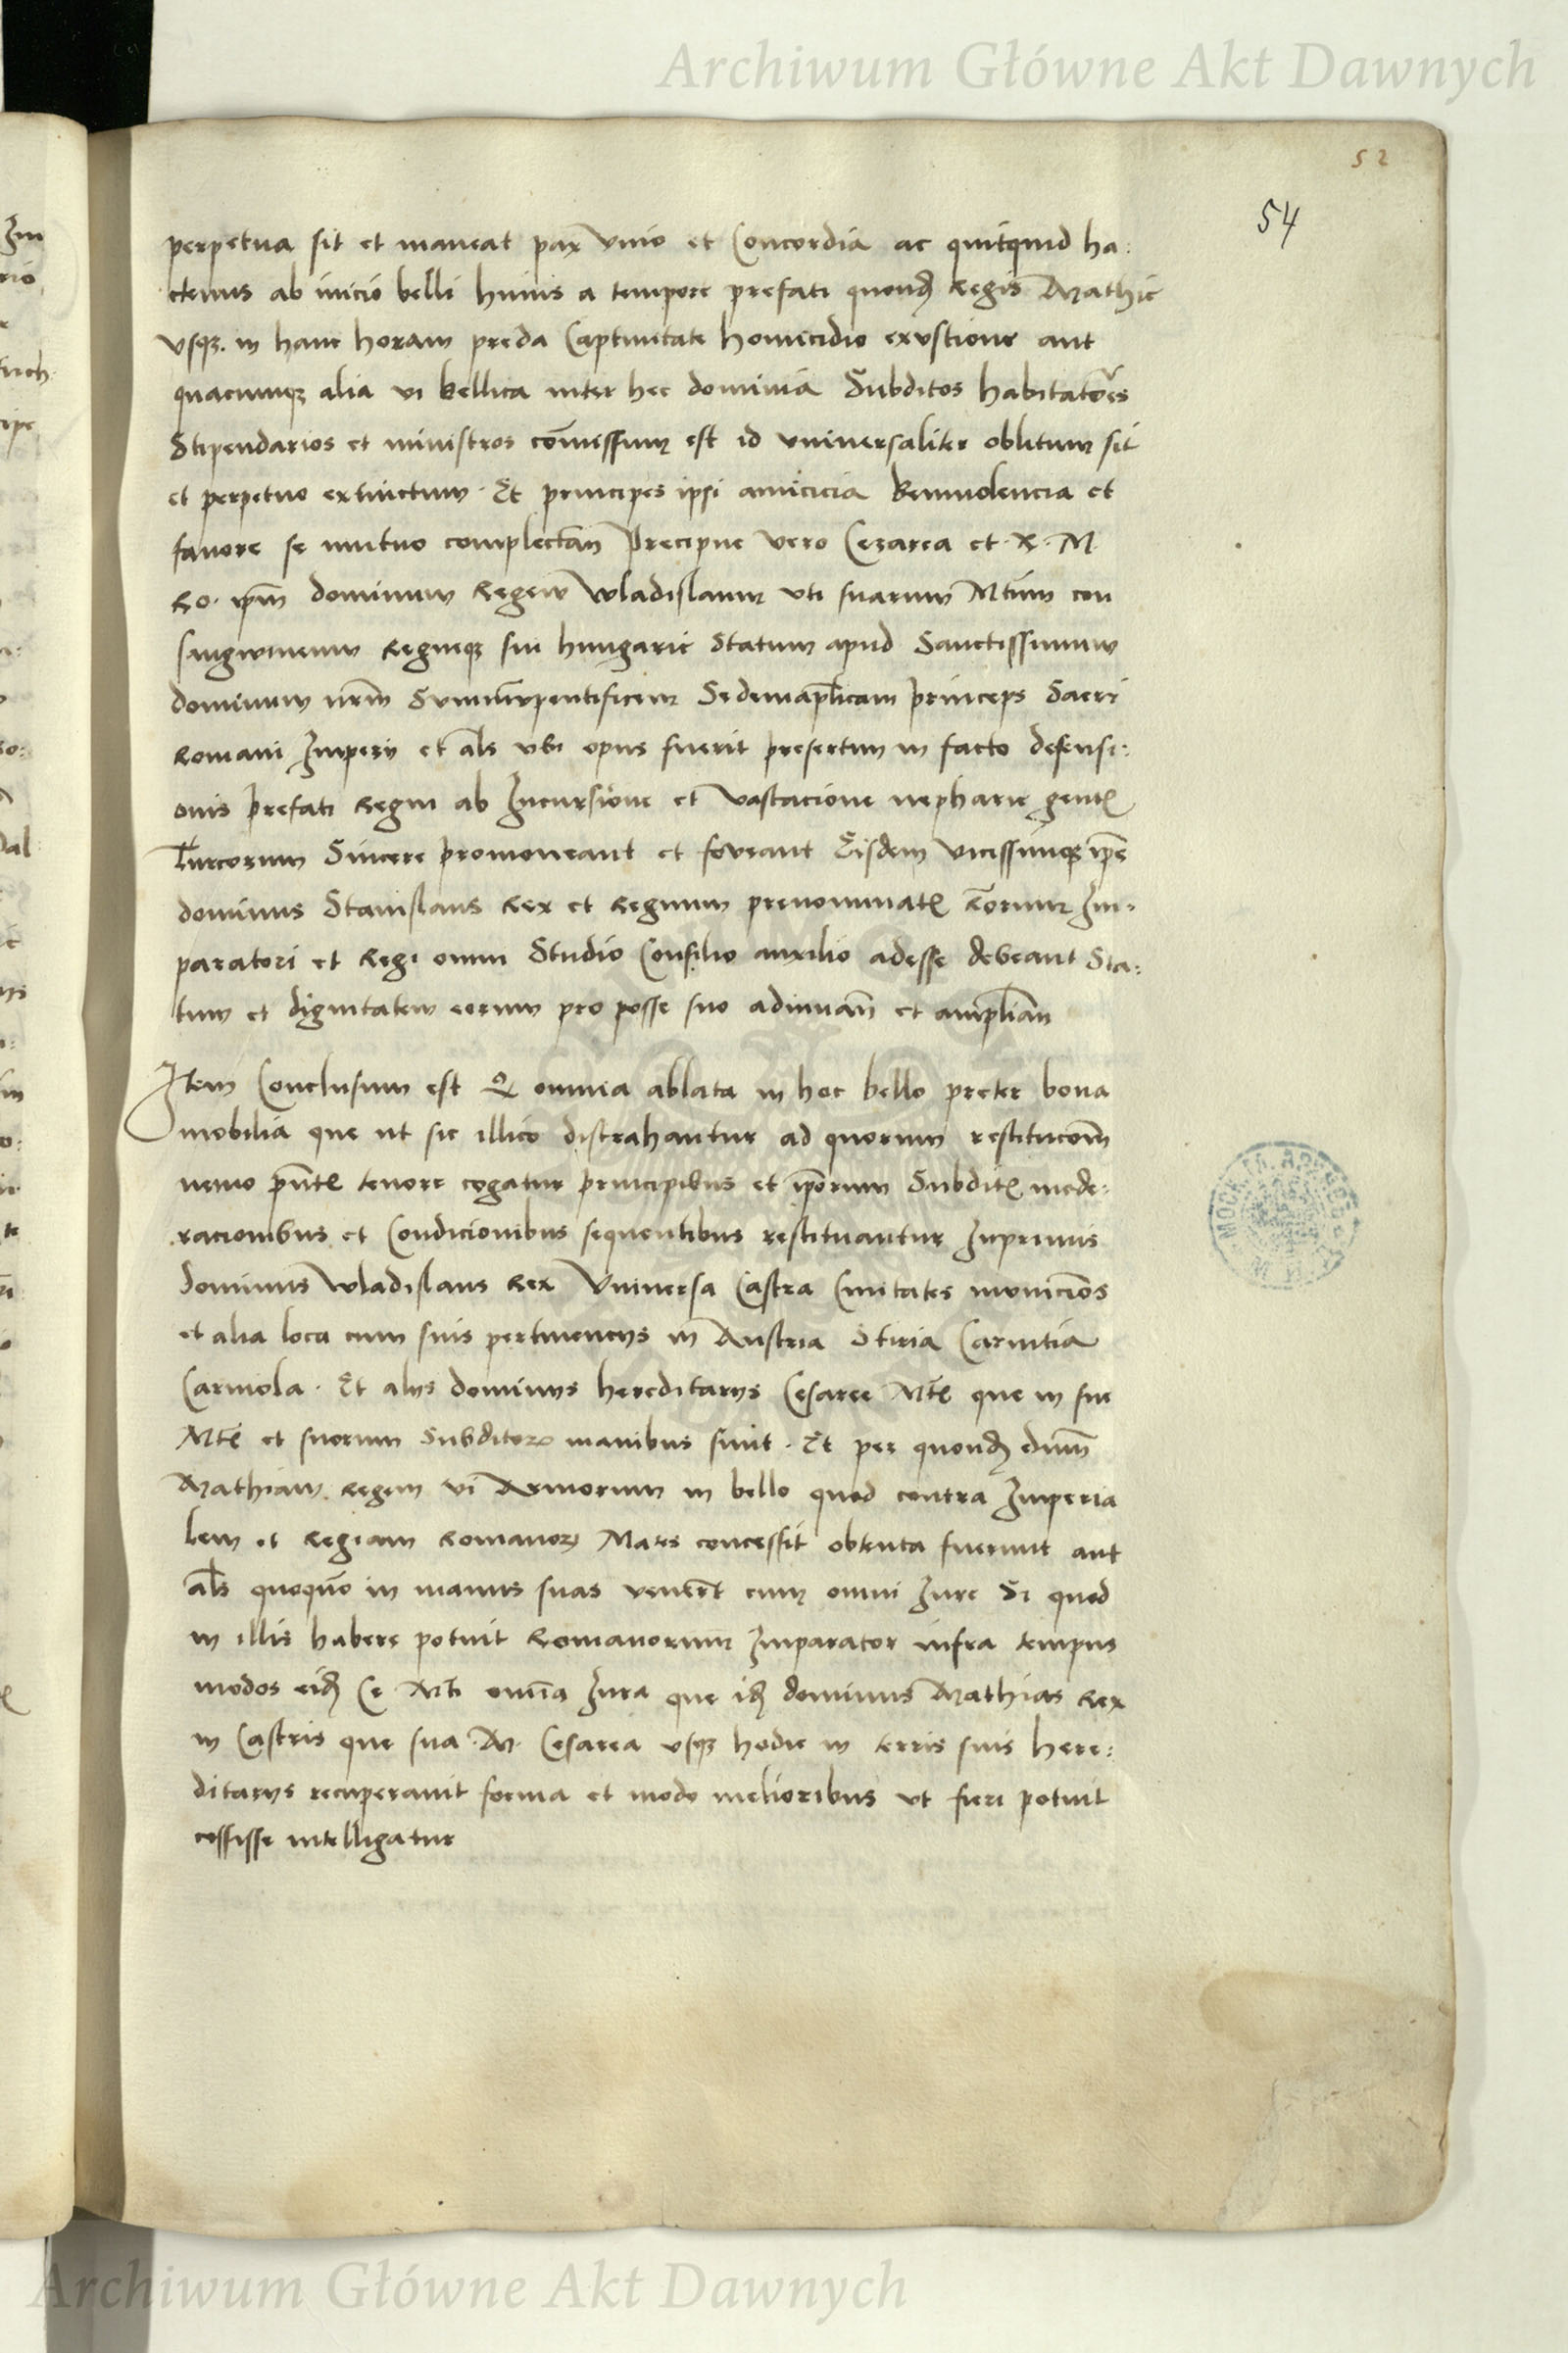 Archiwum Główne Akt Dawnych
52
54
perpetua sit et maneat pax vnio et Concordia ac quitquid ha:
ctenus ab inicio belli huius a tempore prefati quond Regis Mathie
vsqz in hanc horam preda Captiuitate homicidio exustione aut
quacumqz alia vi bellica inter hec dominia Subditos habitatores
Stipendarios et ministros comissum est id vniuersaliter oblitum sit
et perpetuo extinctum. Et principes ipsi amicicia beniuolencia et
fauore se mutuo complectan Precipue vero Cezarea et R. M.
Ro. ipm dominum Regem Wladislaum vti suarum Mtum con
sanguineum Regniqz sui hungarie Statum apud Sanctissimum
dominum nrm Summumpontificem Sedemaplicam princeps Sacri
Romani Impery et als vbi opus fuerit presertim in facto defensi:
onis prefati Regni ab Incursione et vastacione nepharie gent
Turcorum Sincere promoueant et foueant Eisdem vicissimqz ipe
dominus Stanislaus Rex et Regnum prenominat Romnorum Im-
paratori et Regi omni Studio Consilio auxilio adesse debeant Sta:
tum et dignitatem eorum pro posse suo adiuuan et amplian
Item Conclusum est Q omnia ablata in hoc bello preter bona
mobilia que ut sic illico distrahantur ad quorum restitucom
nemo pnt tenore cogatur principibus et iporum Subdit mode:
racionibus et Condicionibus sequentibus restituantur Inprimis
dominus Wladislaus Rex Vniuersa Castra Ciuitates municions
et alia loca cum suis pertinencys in Austria Stiria Carintia
Carniola. Et alys dominys hereditarys Cesaree Mt que in sue
Mt et suorum Subditorz manibus sunt. Et per quond dnm
Mathiam Regem vi Armorum in bello quod contra Imperia
lem et Regiam Romanorz Mates concessit obtenta fuerunt aut
als quoquo in manus suas venert cum omni Jure Si quod
in illis habere potuit Romanorum Imparator infra tempus
modos eid Ce Mti omnia Jura que id dominus Mathias Rex
in Castris que sua M. Cesarea vsqz hodie in terris suis here:
ditarys recuperauit forma et modo melioribus vt fieri potuit
cessisse intelligatur
Archiwum Główne Akt Dawnych